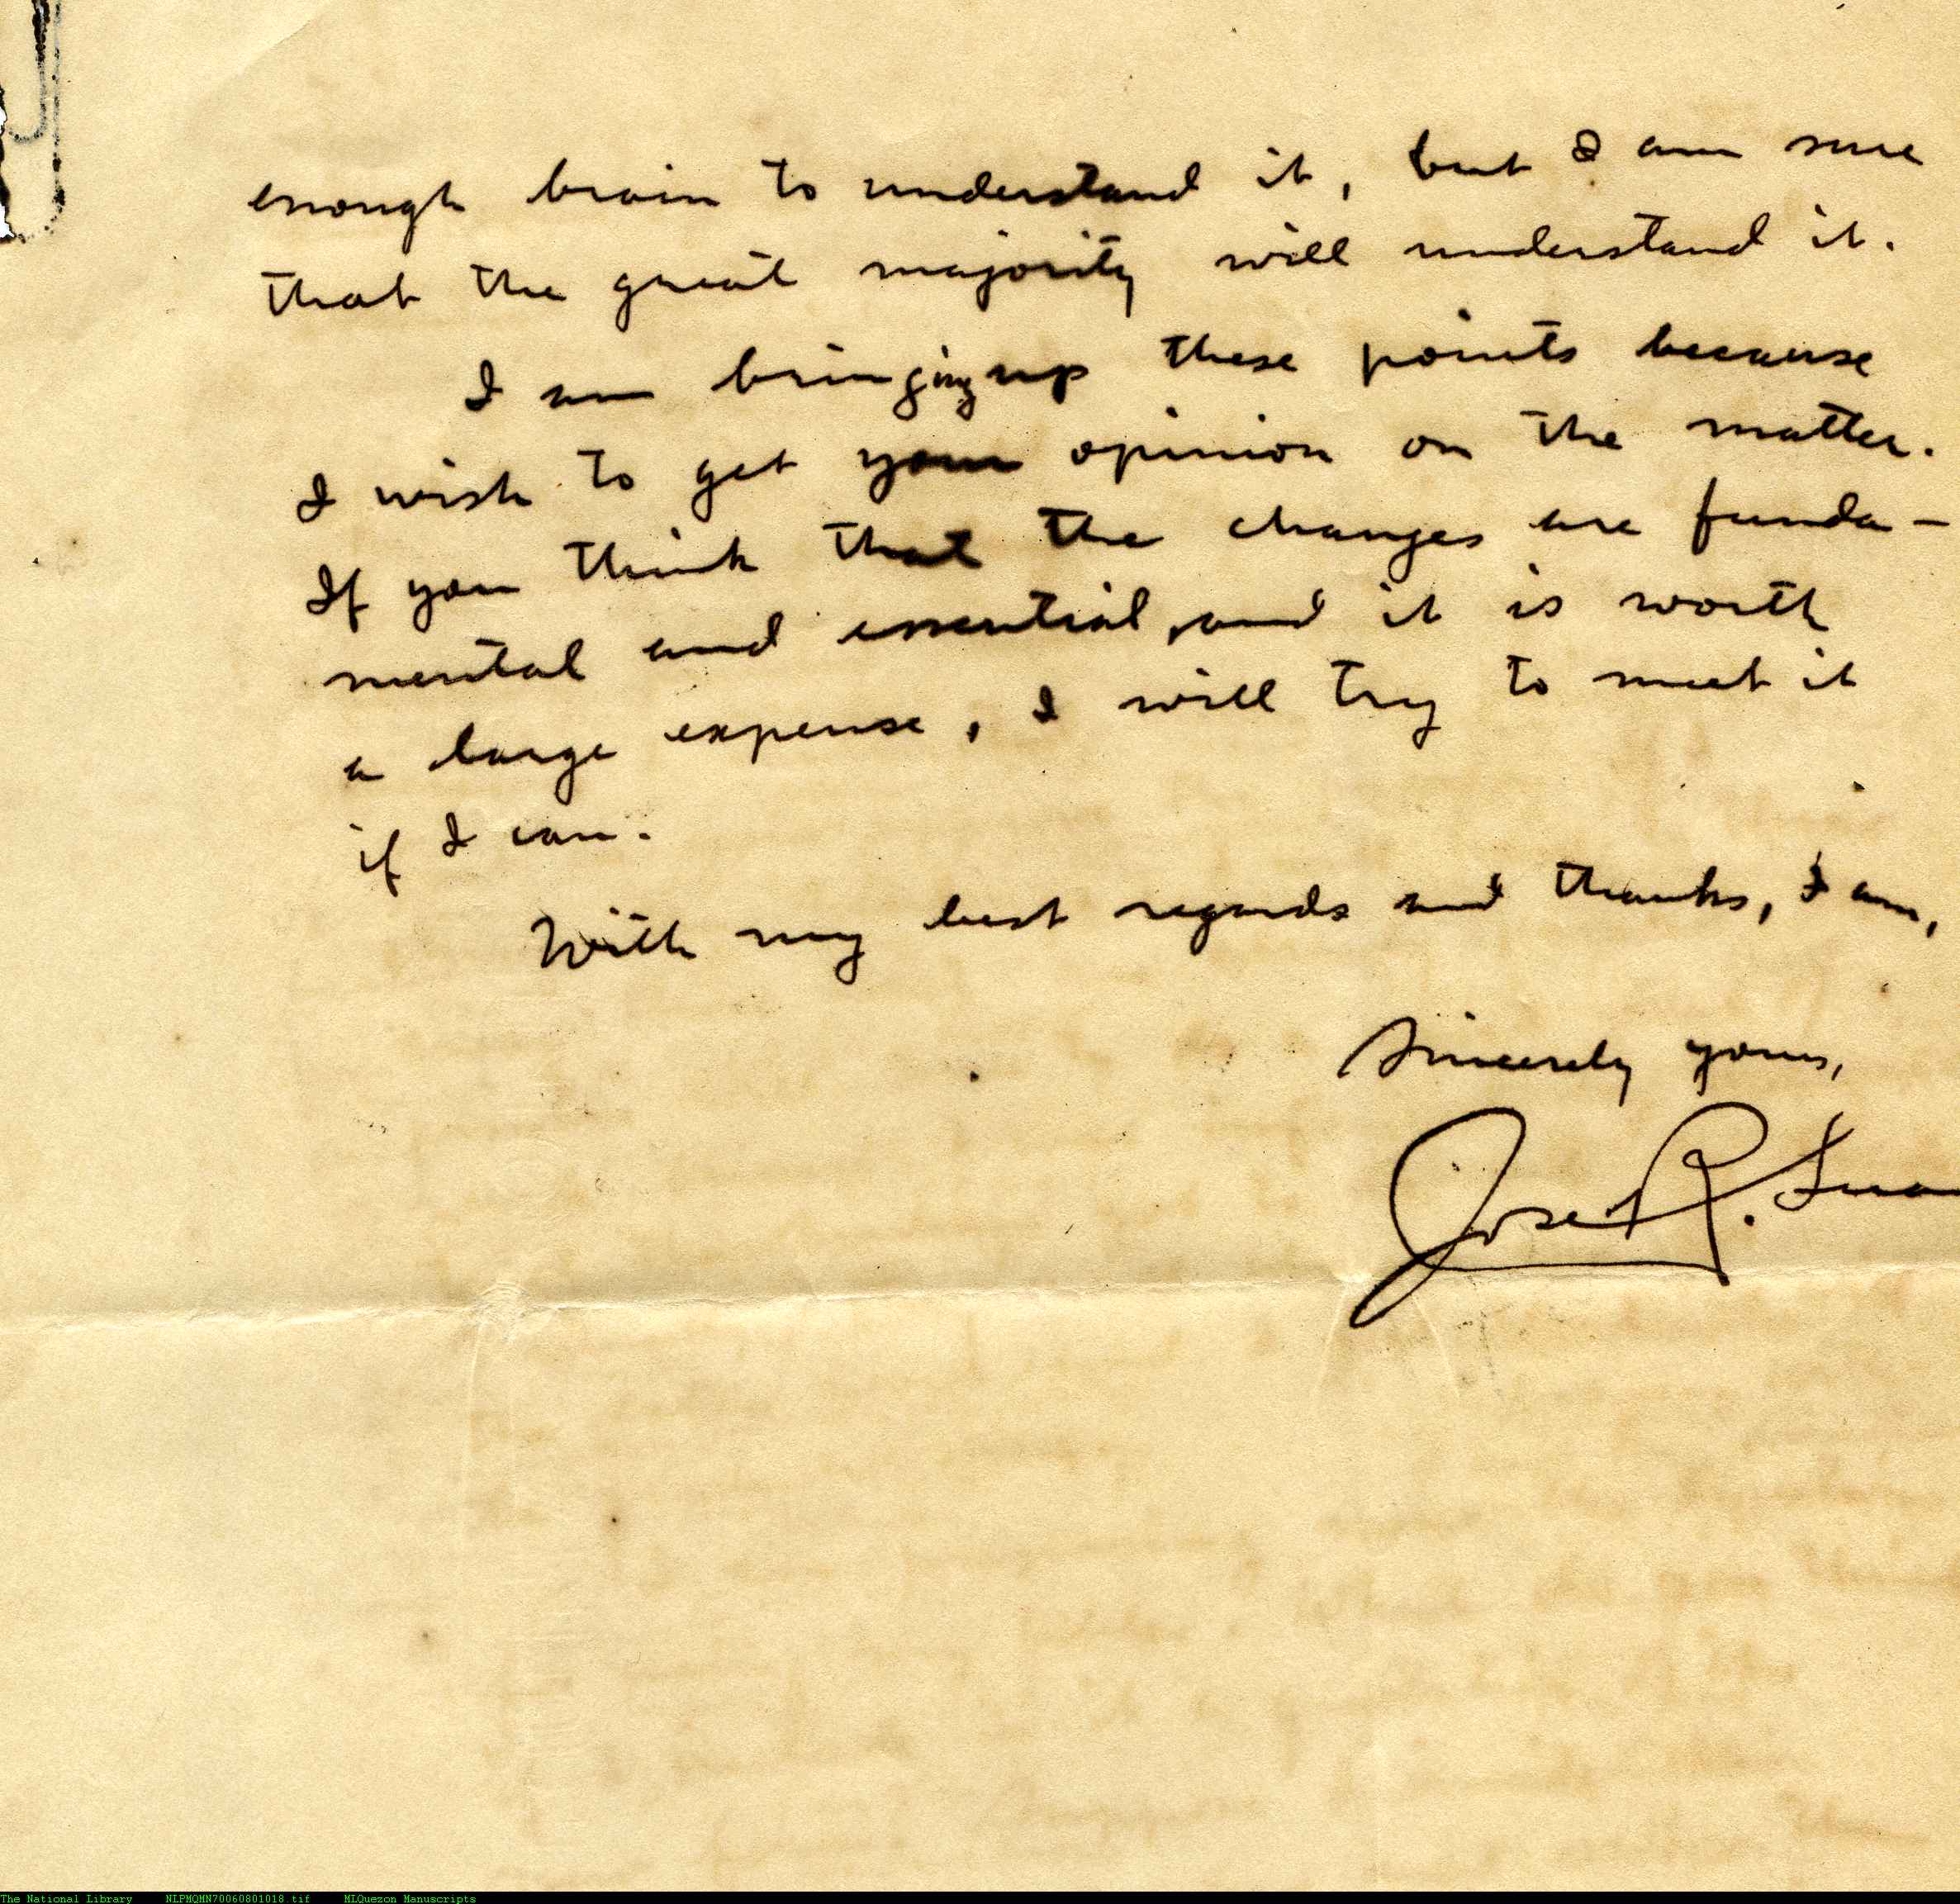 enough brain to understand it, but I am sure
that the great majority will understand it.
I am bringing up these points because
I wish to get your opinion on the matter.
If you think that the changes are funda-
mental and essential, and it is worth
a large expense, I will try to meet it
if I can.
With my best regards and thanks, I am,
Sincerely yours,
Jose R.
The National Library NLPMQMN70060801018.tif MLQuezon Manuscripts